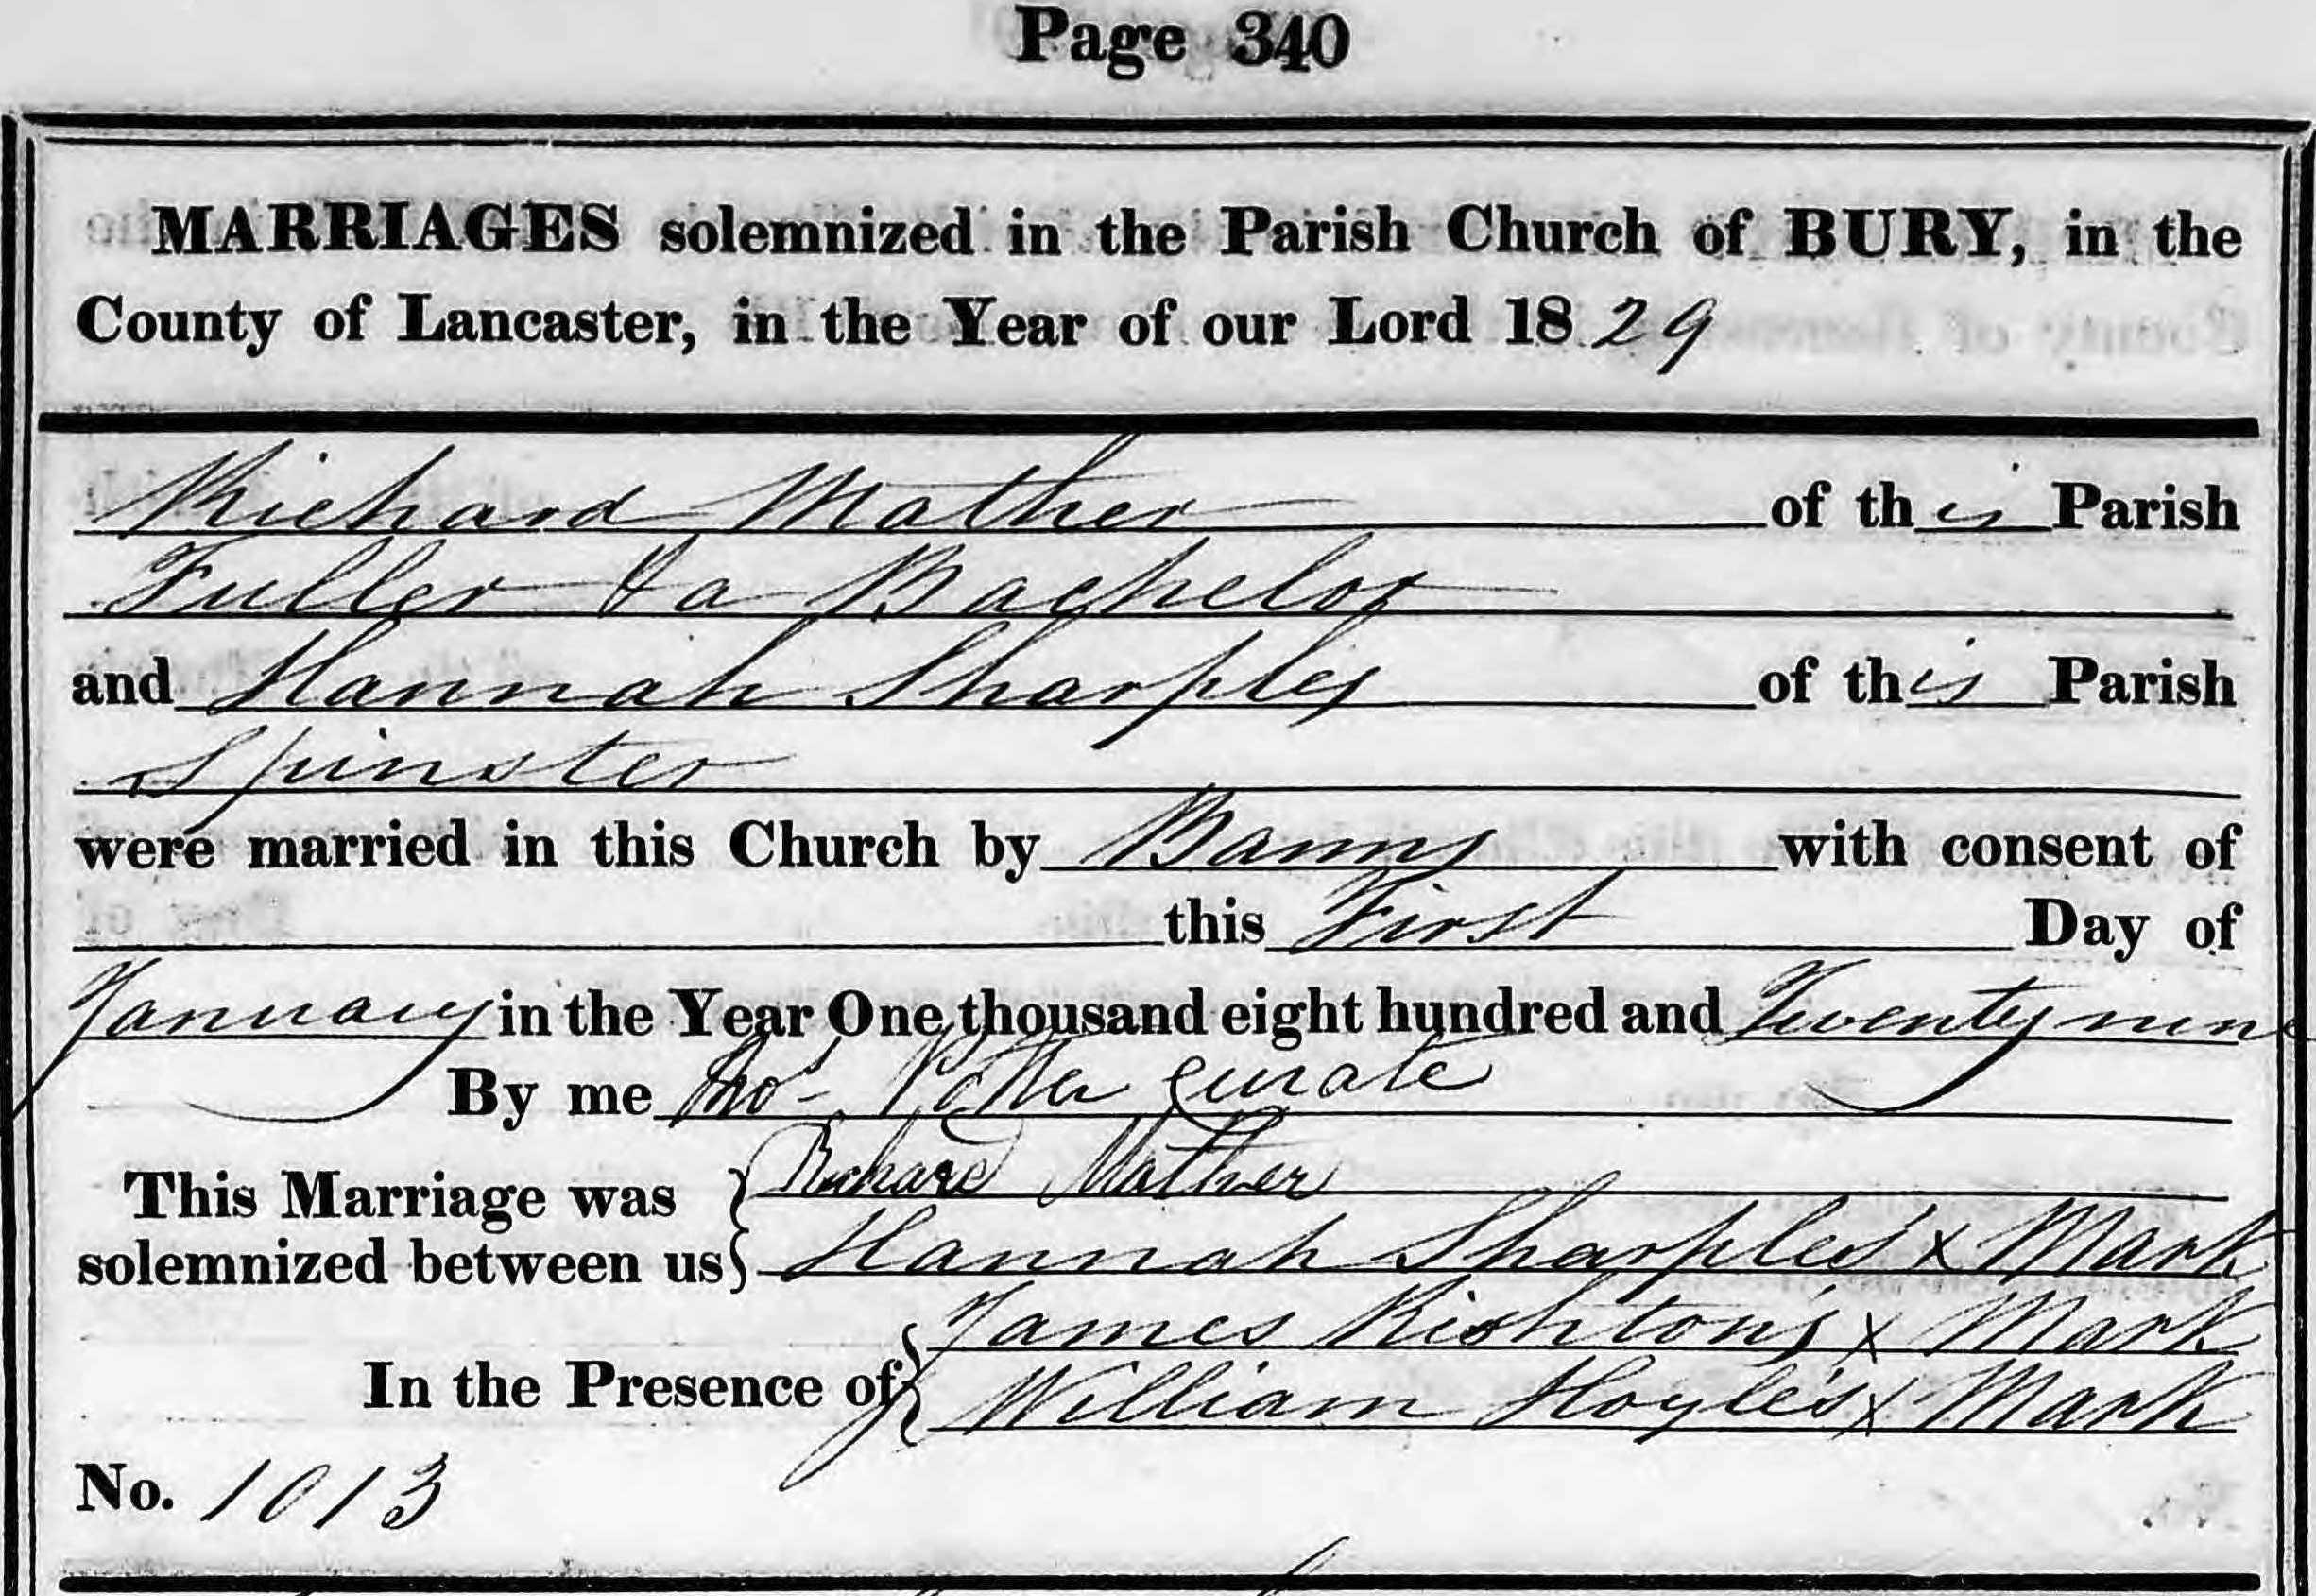 Page 340
MARRIAGES solemnized in the Parish Church of BURY, in the
County of Lancaster, in the Year of our Lord 1829
Richard Mather of this Parish
Fuller & a Bachelor
and Hannah Sharples of this Parish
Spinster
were married in this Church by Banns with consent of
this First Day of
January in the Year One thousand eight hundred and Twenty nine
By me Thos. Potter Curate
This Marriage was
solemnized between us
Richard Mather
Hannah Sharples's x Mark
In the Presence of
James Rishton's x Mark
William Hoyle's x Mark
No. 1013